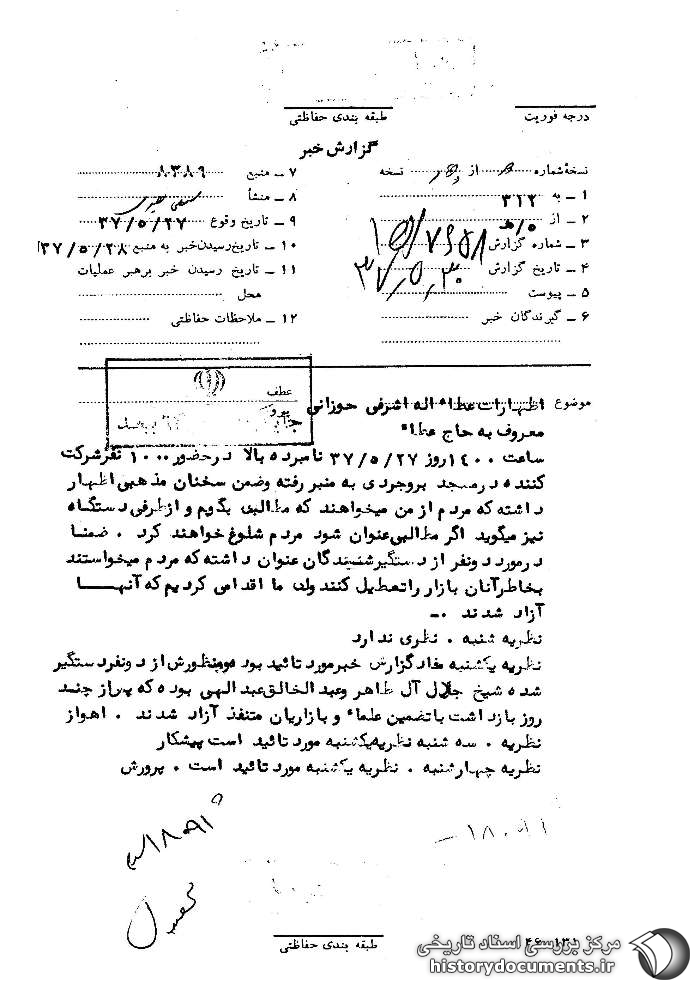 درجه فوریت
طبقه بندی حفاظتی
گزارش خبر
نسخه شماره از نسخه
۱ ـ به ۳۱۲
۲ ـ از ۵/هـ
۳ ـ شماره گزارش
۴ ـ تاریخ گزارش ۳۷٫۵٫۳۰
۵ ـ پیوست
۶ ـ گیرندگان خبر
۷ ـ منبع ۸۳۸۹
۸ ـ منشأ
۹ ـ تاریخ وقوع ۳۷/۵/۲۷
۱۰ ـ تاریخ رسیدن خبر به منبع ۳۷/۵/۲۸
۱۱ ـ تاریخ رسیدن خبر برهبر عملیات
محل
۱۲ ـ ملاحظات حفاظتی
عطف
پیرو
موضوع اظهارات عطاء اله اشرفی حوزانی
معروف به حاج عطاء
ساعت ۱۴۰۰ روز ۳۷/۵/۲۷ نامبرده بالا در حضور ۱۰۰۰ نفر شرکت
کننده در مسجد بروجردی به منبر رفته و ضمن سخنان مذهبی اظهار
داشته که مردم از من میخواهند که مطالبی بگویم و از طرفی دستگاه
نیز میگوید اگر مطالبی عنوان شود مردم شلوغ خواهند کرد . ضمنا
در مورد دو نفر از دستگیر شدگان عنوان داشته که مردم میخواستند
بخاطر آنان بازار را تعطیل کنند ولی ما اقدامی کردیم که آنهـــا
آزاد شدند .ـ
نظریه شنبه . نظری ندارد
نظریه یکشنبه مفاد گزارش خبر مورد تائید بوده و منظورش از دو نفر دستگیر
شده شیخ جلال آل طاهر و عبدالخالق عبدالهی بوده که پس از چند
روز بازداشت با تضمین علماء و بازاریان متنفذ آزاد شدند . اهواز
نظریه . سه شنبه نظریه یکشنبه مورد تائید است پیشکار
نظریه چهارشنبه . نظریه یکشنبه مورد تائید است . پرورش
طبقه بندی حفاظتی
مرکز بررسی اسناد تاریخی
historydocuments.ir